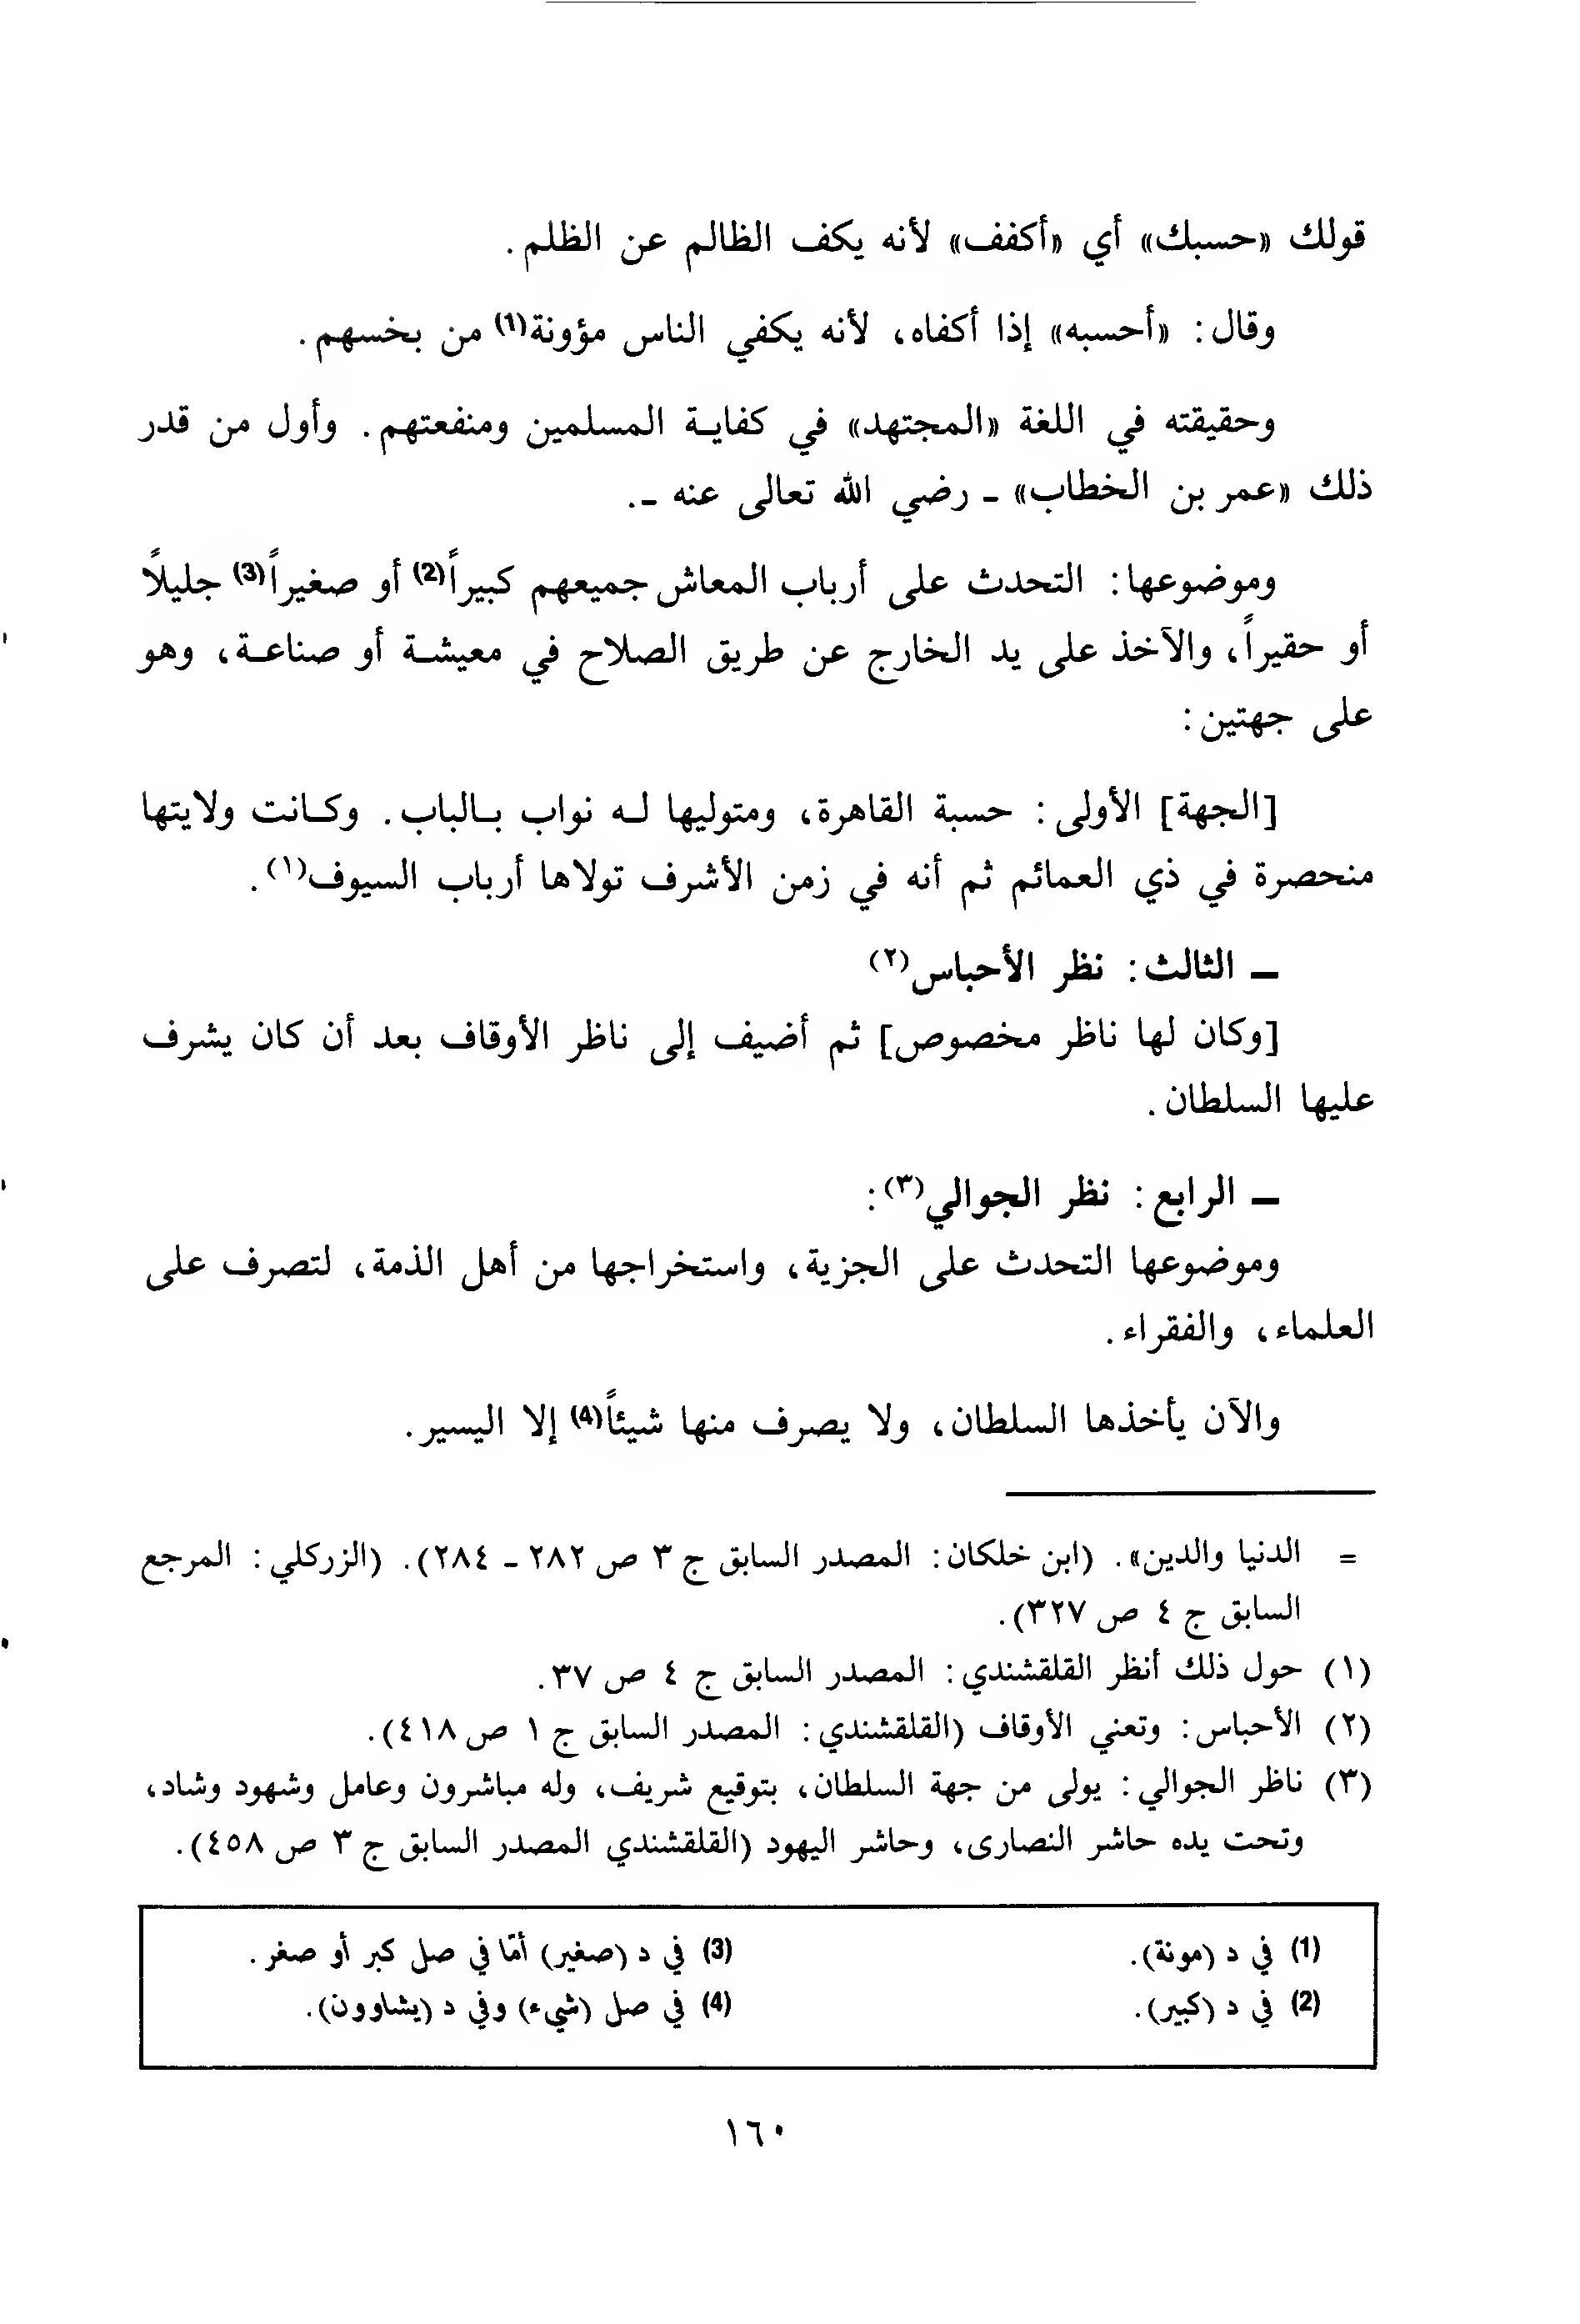 قولك «حسبك» أي «أكفف» لأنه يكف الظالم عن الظلم.
وقال: «أحسبه» إذا أكفاه، لأنه يكفي الناس مؤونة(1) من بخسهم.
وحقيقته في اللغة «المجتهد» في كفايـة المسلمين ومنفعتهم. وأول من قدر
ذلك «عمر بن الخطاب» ـ رضي الله تعالى عنه ـ.
وموضوعها: التحدث على أرباب المعاش جميعهم كبيراً(2) أو صغيراً(3) جليلاً
أو حقيراً، والآخذ على يد الخارج عن طريق الصلاح في معيشـة أو صناعـة، وهو
على جهتين:
[الجهة] الأولى: حسبة القاهرة، ومتوليها لـه نواب بـالباب. وكـانت ولايتها
منحصرة في ذي العمائم ثم أنه في زمن الأشرف تولاها أرباب السيوف(١).
ـ الثالث: نظر الأحباس(٢)
[وكان لها ناظر مخصوص] ثم أضيف إلى ناظر الأوقاف بعد أن كان يشرف
عليها السلطان.
ـ الرابع: نظر الجوالي(٣):
وموضوعها التحدث على الجزية، واستخراجها من أهل الذمة، لتصرف على
العلماء، والفقراء.
والآن يأخذها السلطان، ولا يصرف منها شيئاً(4) إلا اليسير.
= الدنيا والدين». (ابن خلكان: المصدر السابق ج ٣ ص ٢٨٢ ـ ٢٨٤). (الزركلي: المرجع
السابق ج ٤ ص ٣٢٧).
(١) حول ذلك أنظر القلقشندي: المصدر السابق ج ٤ ص ٣٧.
(٢) الأحباس: وتعني الأوقاف (القلقشندي: المصدر السابق ج ١ ص ٤١٨).
(٣) ناظر الجوالي: يولى من جهة السلطان، بتوقيع شريف، وله مباشرون وعامل وشهود وشاد،
وتحت يده حاشر النصارى، وحاشر اليهود (القلقشندي المصدر السابق ج ٣ ص ٤٥٨).
(1) في د (مونة).
(2) في د (كبير).
(3) في د (صغير) أمّا في صل كبر أو صغر.
(4) في صل (شيء) وفي د (يشاوون).
١٦٠